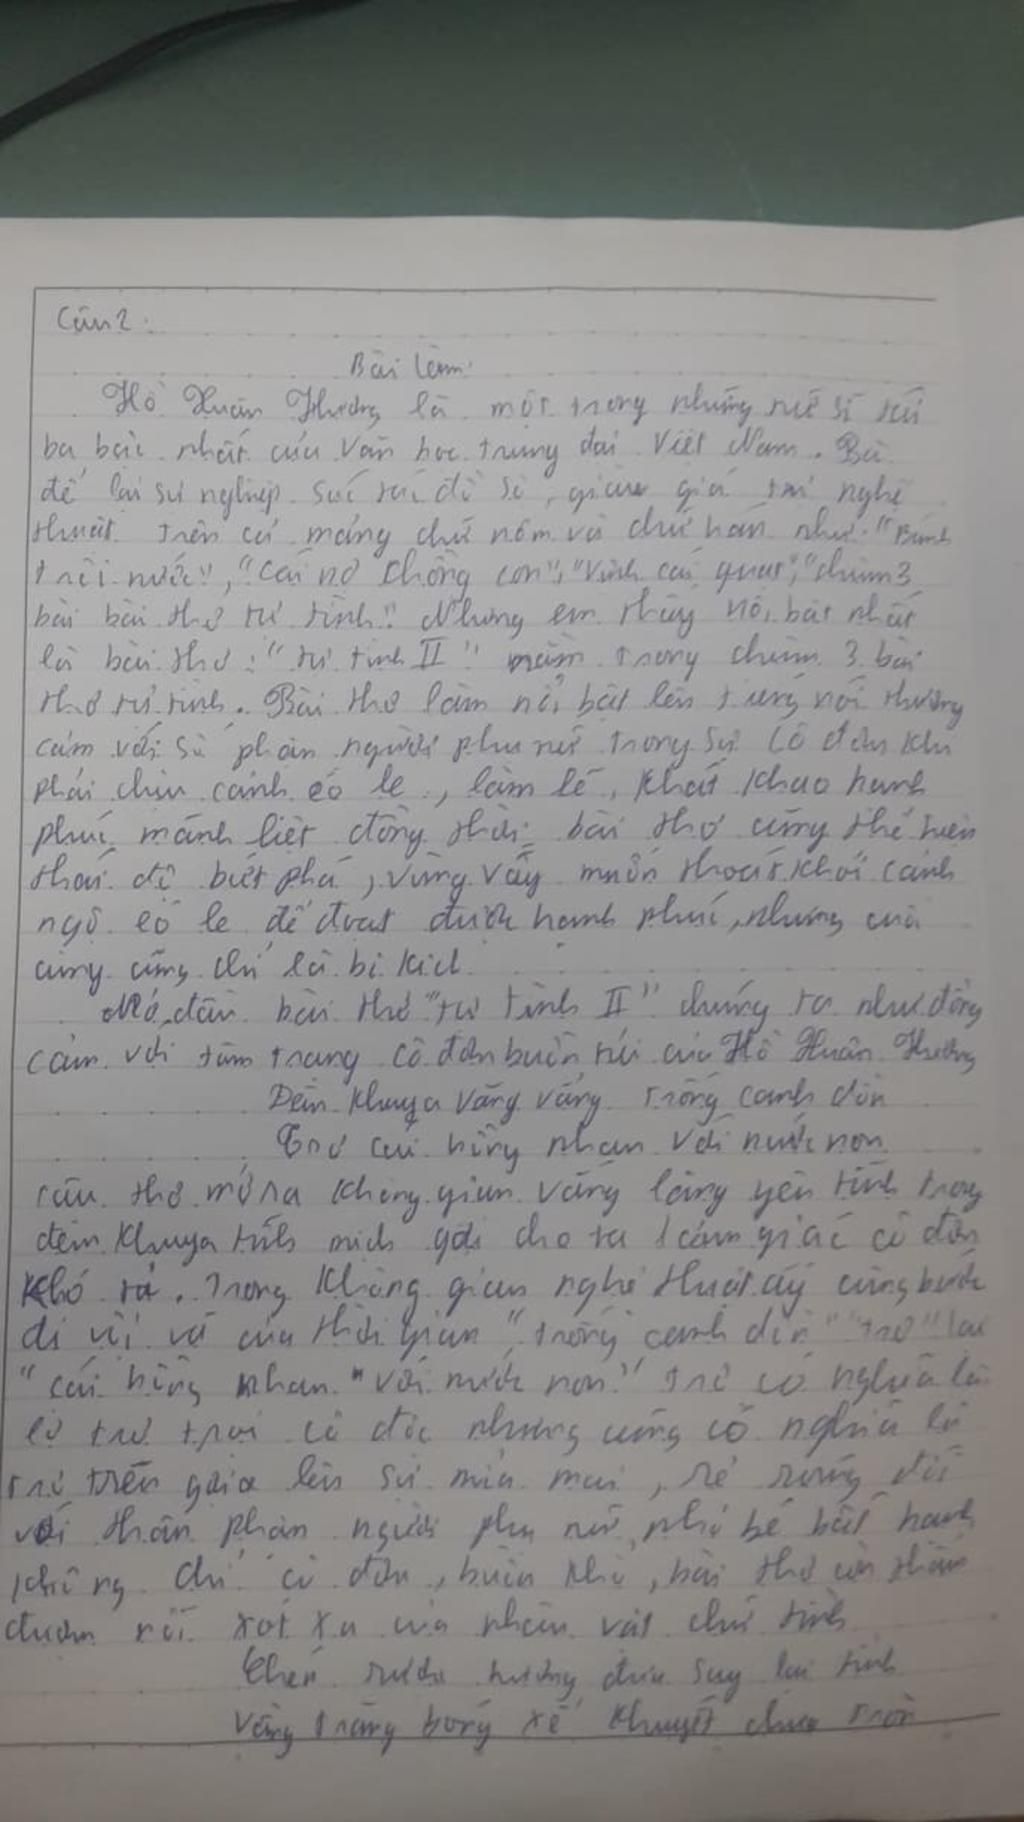 Câu 2:
Bài làm:
Hồ Xuân Hương là một trong những nữ sĩ tài
ba bậc nhất của văn học trung đại Việt Nam. Bà
để lại sự nghiệp sác tác đồ sộ, giàu giá trị nghệ
thuật trên cả mảng chữ nôm và chữ hán như: "Bánh
trôi nước", "Cái nợ chồng con", "Vịnh cái quạt", "chùm 3
bài bài thơ tự tình". Nhưng em thấy nổi bật nhất
là bài thơ: "tự tình II" nằm trong chùm 3 bài
thơ tự tình. Bài thơ làm nổi bật lên tiếng nói thương
cảm với số phận người phụ nữ trong sự cô đơn khi
phải chịu cảnh éo le, làm lẽ, khát khao hạnh
phúc mãnh liệt đồng thời bài thơ cũng thể hiện
thái độ biết phá, vùng vẫy muốn thoát khỏi cảnh
ngộ éo le để đoạt được hạnh phúc, nhưng cuối
cùng cũng chỉ là bi kịch.
Mở đầu bài thơ "tự tình II" chúng ta như đồng
cảm với tâm trạng cô đơn buồn tủi của Hồ Xuân Hương
Đêm khuya văng vẳng trống canh dồn
Trơ cái hồng nhan với nước non
câu thơ mở ra không gian vắng lặng yên tĩnh trong
đêm khuya tĩnh mịch gợi cho ta 1 cảm giác cô đơn
khó tả. Trong không gian nghệ thuật ấy cùng bước
đi vội vã của thời gian "trống canh dồn" "trơ" lại
"cái hồng nhan" với nước non" trơ có nghĩa là
là trơ trọi cô độc nhưng cũng có nghĩa là
trơ trẽn gợi lên sự mỉa mai, rẻ rúng đối
với thân phận người phụ nữ nhỏ bé bất hạnh
không chỉ cô đơn, buồn khổ, bài thơ còn
được nỗi xót xa của nhân vật chữ tình
Chén rượu hương đưa say lại tỉnh
Vầng trăng bóng xế khuyết chưa tròn